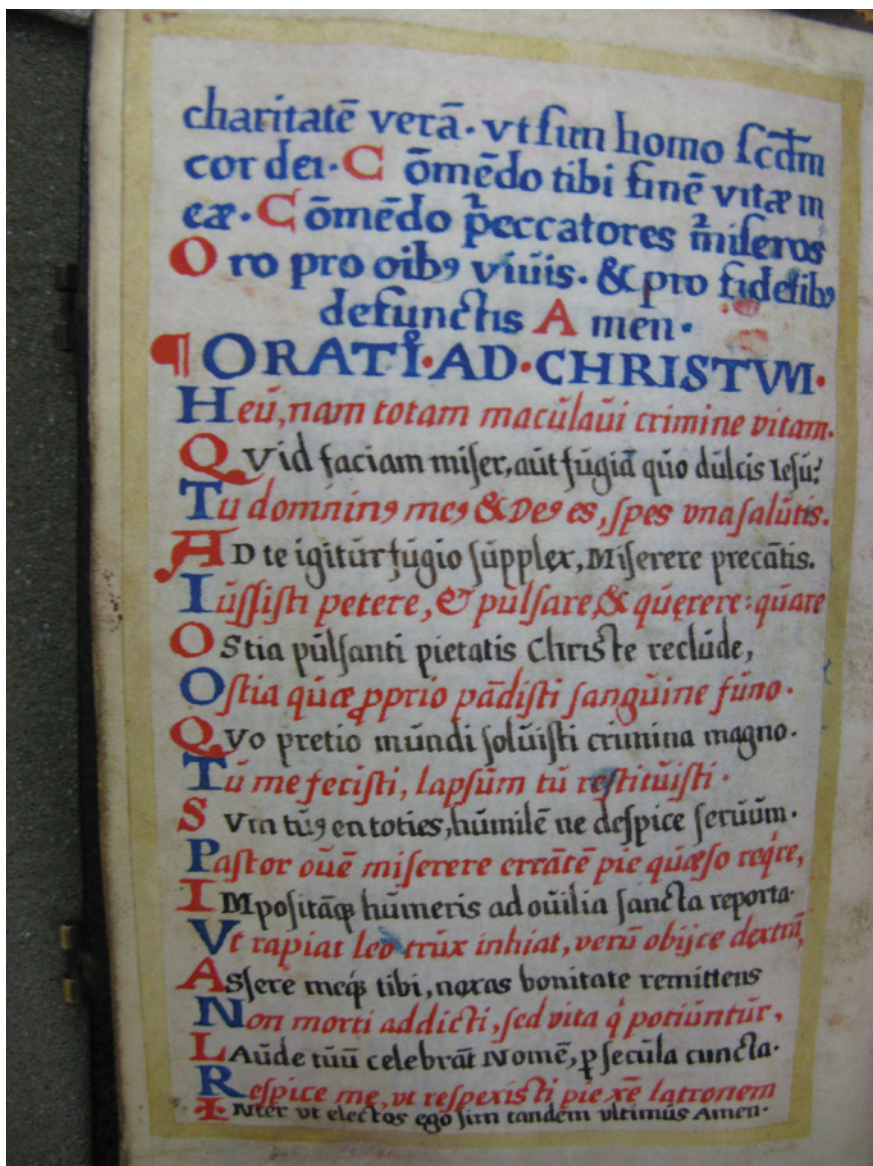 charitatē verā. vt sim homo scdm
cor dei. C ōmēdo tibi finē vitæ m
eæ. C ōmēdo p̄eccatores m̄iseros
O ro pro oib9 viuis. & pro fidelib9
defunctis A men.
¶ ORATI°. AD. CHRISTVM.
Heŭ, nam totam macŭlaŭi crimine vitam.
QVid faciam miser, aŭt fŭgiā qŭo dŭlcis Iesŭ?
Tu dominŭ9 me9 & De9 es, spes vna salŭtis.
AD te igitŭr fŭgio sŭpplex, Miserere precātis.
Iŭssisti petere, & pŭlsare, & qŭęrere: qŭare
OStia pŭlsanti pietatis Christe reclŭde,
Ostia qŭæ ꝓprio pādisti sangŭine fŭno.
QVo pretio mŭndi solŭisti crimina magno.
Tŭ me fecisti, lapsŭm tŭ restitŭisti.
SVm tŭ9 en toties, hŭmilē ne despice serŭŭm.
Pastor oŭē miserere errātē pie qŭæso reqͥre,
IMpositāqꝫ hŭmeris ad oŭilia sancta reporta.
Vt rapiat leo trŭx inhiat, verŭ obijce dextrā,
ASsere meqꝫ tibi, noxas bonitate remittens
Non morti addicti, sed vita qͥ potiŭntŭr,
LAŭde tŭŭ celebrāt Nomē, ꝑ secŭla cŭncta.
Respice me, vt respexisti pie xē latronem
INter vt electos ego sim tandem vltimŭs Amen.